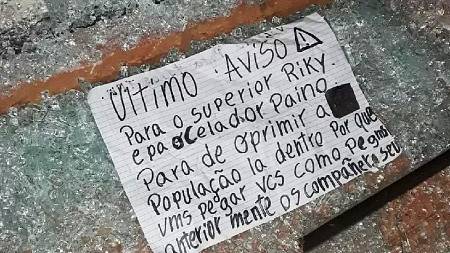 Ultimo Aviso
Para o superior Riky
e pa o celador Paino
Para de oprimir a
População la dentro Por que
vms pegar vcs como pegmo
anterior mente os compañero seu